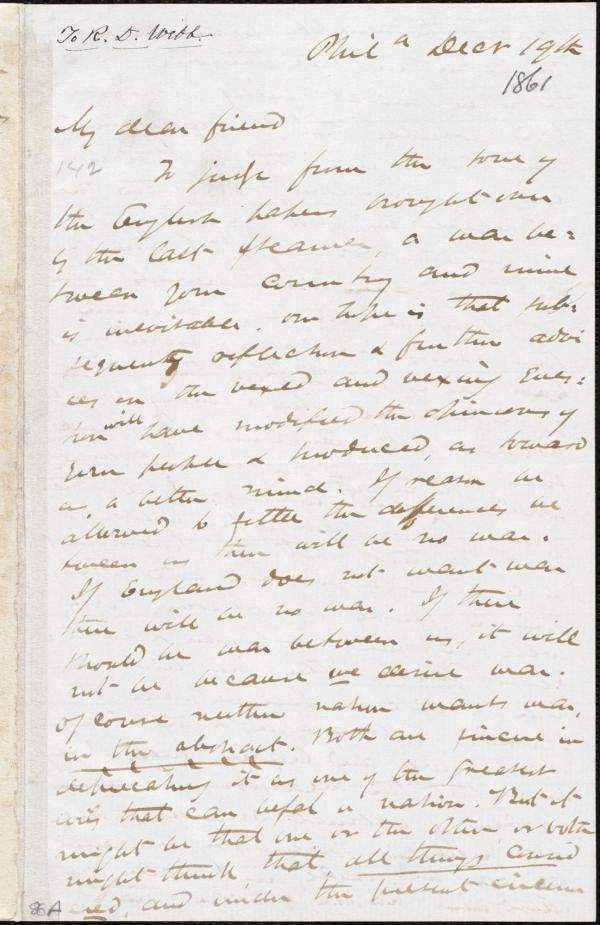 To R. D. Webb.
Phil a Decr 19th
1861
My dear friend
142
To judge from the tone of
the English papers brought over
by the last steamer, a war be=
tween your country and mine
is inevitable. Our hope is that sub=
sequent reflection & further advi
ces on the vexed and vexing ques=
tion will have modified the opinions of
your people & produced, as toward
us, a better mind. If reason be
allowed to settle the differences be
tween us there will be no war.
If England does not want war
there will be no war. If there
should be war between us, it will
not be because we desire war.
Of course neither nation wants war,
in the abstract. Both are sincere in
deprecating it as one of the greatest
evils that can befal a nation. But it
might be that one or the other or both
might think that, all things consid
ered, and under the present circum
86A